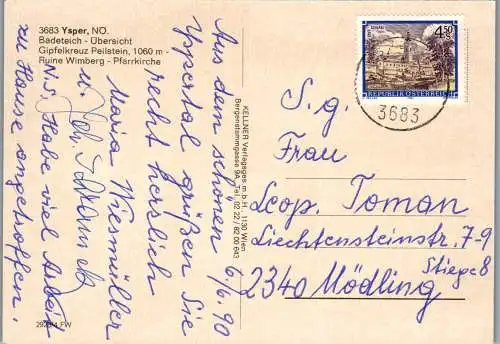 3683 Ysper, NÖ.
Badeteich - Übersicht
Gipfelkreuz Peilstein, 1060 m -
Ruine Wimberg - Pfarrkirche
Aus dem schönen 6./6. 90
Yspertal grüßen Sie
recht herzlich
Maria Wiesmüller
u.
N.S. Habe viel Arbeit
zu Hause angetroffen.
KELLNER Verlagsges.m.b.H., 1130 Wien
Bergenstammgasse 9A, Tel. 02 22 / 82 00 643
4.50
REPUBLIK ÖSTERREICH
3683
S. g.
Frau
Leop. Toman
Liechtensteinstr. 7-9
Stiege 8
2340 Mödling
FW